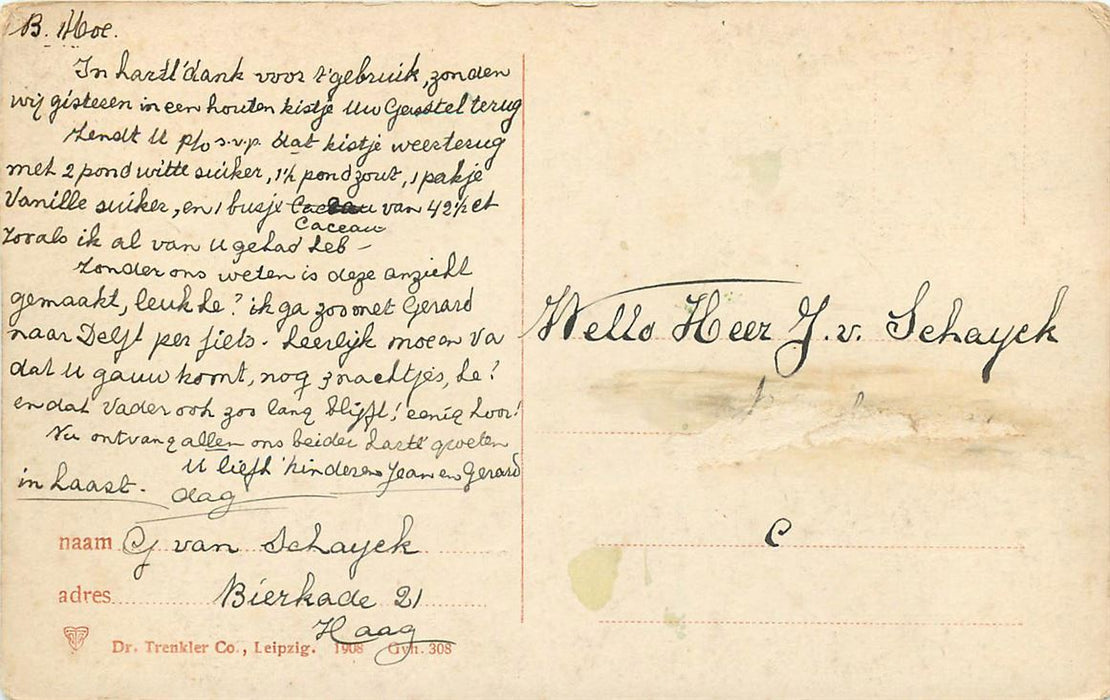 B. Moe.
In hartl' dank voor 't gebruik, zonden
wij gisteren in een houten kistje Uw Gestel terug
Zendt U p/o s.v.p. dat kistje weer terug
met 2 pond witte suiker, 1½ pond zout, 1 pakje
Vanille suiker, en 1 busje van 42½ ct
Caceau
zooals ik al van U gehad heb –
Zonder ons weten is deze anzicht
gemaakt, leuk he? ik ga zoo met Gerard
naar Delft per fiets. heerlijk moe en Va
dat U gauw komt, nog 3 nachtjes, he?
en dat Vader ook zoo lang blijft! eenig hoor!
Nu ontvang allen ons beider hartl' groeten
U liefh' kinderen Jean en Gerard
in haast. dag
naam Cj van Schayck
adres Bierkade 21
Haag
Dr. Trenkler Co., Leipzig. 1908 Gvh. 308
Wello Heer J. v. Schayck
C